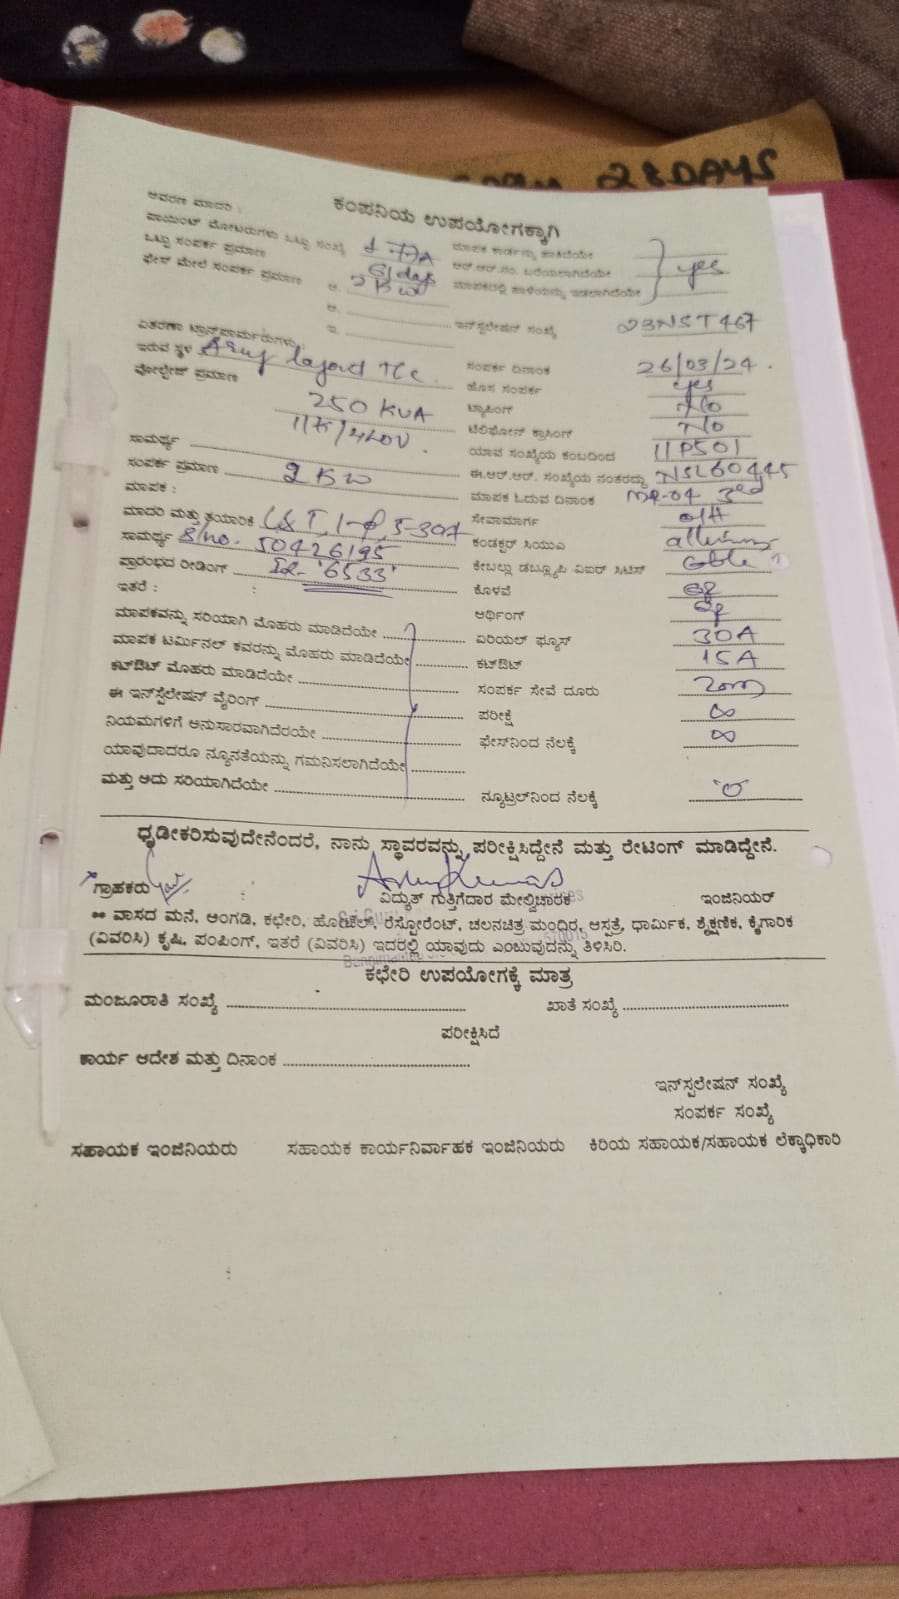 28DAYS
ಕಂಪನಿಯ ಉಪಯೋಗಕ್ಕಾಗಿ
ಆವರಣ ಮಾದರಿ :
ಪಾಯಿಂಟ್ ಮೋಟರುಗಳು ಒಟ್ಟು ಸಂಖ್ಯೆ ಮಾಪಕ ಕಾರ್ಡನ್ನು ಹಾಕಿದೆಯೇ
ಒಟ್ಟು ಸಂಪರ್ಕ ಪ್ರಮಾಣ ಆರ್.ಆರ್.ನಂ. ಬರೆಯಲಾಗಿದೆಯೇ yes
ಫೇಸ್ ಮೇಲೆ ಸಂಪರ್ಕ ಪ್ರಮಾಣ ಅ. 2 KW ಮಾಪಕದಲ್ಲಿ ಹಾಳೆಯನ್ನು ಇಡಲಾಗಿದೆಯೇ
ಇನ್‌ಸ್ಪಲೇಷನ್ ಸಂಖ್ಯೆ 23NST467
ವಿತರಣಾ ಟ್ರಾನ್ಸ್‌ಫಾರ್ಮರುಗಳು
ಇರುವ ಸ್ಥಳ ಸಂಪರ್ಕ ದಿನಾಂಕ 26/03/24.
ವೋಲ್ಟೇಜ್ ಪ್ರಮಾಣ ಹೊಸ ಸಂಪರ್ಕ yes
250 KVA ಟ್ಯಾಪಿಂಗ್ No
ಟೆಲಿಫೋನ್ ಕ್ರಾಸಿಂಗ್ No
ಸಾಮರ್ಥ್ಯ ಯಾವ ಸಂಖ್ಯೆಯ ಕಂಬದಿಂದ 11P501
ಸಂಪರ್ಕ ಪ್ರಮಾಣ 2 KW ಈ.ಆರ್.ಆರ್. ಸಂಖ್ಯೆಯ ನಂತರದ್ದು NSL60445
ಮಾಪಕ : ಮಾಪಕ ಓದುವ ದಿನಾಂಕ MR-04 3rd
ಮಾದರಿ ಮತ್ತು ತಯಾರಿಕೆ L&T, 1-φ, 5-30A ಸೇವಾಮಾರ್ಗ o/H
ಸಾಮರ್ಥ್ಯ S/no. 50426195 ಕಂಡಕ್ಟರ್ ಸಿಯುಎ
ಪ್ರಾರಂಭದ ರೀಡಿಂಗ್ IR- '6533' ಕೇಬಲ್ಲು ಡಬ್ಲ್ಯೂಪಿ ವಿಐರ್ ಸಿಟಿಸ್ Cable
ಇತರೆ : : ಕೊಳವೆ
ಮಾಪಕವನ್ನು ಸರಿಯಾಗಿ ಮೊಹರು ಮಾಡಿದೆಯೇ ಅರ್ಥಿಂಗ್
ಮಾಪಕ ಟರ್ಮಿನಲ್ ಕವರನ್ನು ಮೊಹರು ಮಾಡಿದೆಯೇ ಏರಿಯಲ್ ಫ್ಯೂಸ್ 30A
ಕಟ್‌ಔಟ್ ಮೊಹರು ಮಾಡಿದೆಯೇ ಕಟ್‌ಔಟ್ 15A
ಈ ಇನ್‌ಸ್ಪೆಲೇಷನ್ ವೈರಿಂಗ್ ಸಂಪರ್ಕ ಸೇವೆ ದೂರು
ನಿಯಮಗಳಿಗೆ ಅನುಸಾರವಾಗಿದೆರಯೇ ಪರೀಕ್ಷೆ ∞
ಯಾವುದಾದರೂ ನ್ಯೂನತೆಯನ್ನು ಗಮನಿಸಲಾಗಿದೆಯೇ ಫೇಸ್‌ನಿಂದ ನೆಲಕ್ಕೆ ∞
ಮತ್ತು ಅದು ಸರಿಯಾಗಿದೆಯೇ ನ್ಯೂಟ್ರಲ್‌ನಿಂದ ನೆಲಕ್ಕೆ 'o'
ಧೃಡೀಕರಿಸುವುದೇನೆಂದರೆ, ನಾನು ಸ್ಥಾವರವನ್ನು ಪರೀಕ್ಷಿಸಿದ್ದೇನೆ ಮತ್ತು ರೇಟಿಂಗ್ ಮಾಡಿದ್ದೇನೆ.
ಗ್ರಾಹಕರು ವಿದ್ಯುತ್ ಗುತ್ತಿಗೆದಾರ ಮೇಲ್ವಿಚಾರಕ ಇಂಜಿನಿಯರ್
** ವಾಸದ ಮನೆ, ಅಂಗಡಿ, ಕಛೇರಿ, ಹೊಟೆಲ್, ರೆಸ್ಟೋರೆಂಟ್, ಚಲನಚಿತ್ರ ಮಂದಿರ, ಆಸ್ಪತ್ರೆ, ಧಾರ್ಮಿಕ, ಶೈಕ್ಷಣಿಕ, ಕೈಗಾರಿಕ
(ವಿವರಿಸಿ) ಕೃಷಿ, ಪಂಪಿಂಗ್, ಇತರೆ (ವಿವರಿಸಿ) ಇದರಲ್ಲಿ ಯಾವುದು ಎಂಬುವುದನ್ನು ತಿಳಿಸಿರಿ.
ಕಛೇರಿ ಉಪಯೋಗಕ್ಕೆ ಮಾತ್ರ
ಮಂಜೂರಾತಿ ಸಂಖ್ಯೆ ಖಾತೆ ಸಂಖ್ಯೆ
ಪರೀಕ್ಷಿಸಿದೆ
ಕಾರ್ಯ ಆದೇಶ ಮತ್ತು ದಿನಾಂಕ
ಇನ್‌ಸ್ಪಲೇಷನ್ ಸಂಖ್ಯೆ
ಸಂಪರ್ಕ ಸಂಖ್ಯೆ
ಸಹಾಯಕ ಇಂಜಿನಿಯರು ಸಹಾಯಕ ಕಾರ್ಯನಿರ್ವಾಹಕ ಇಂಜಿನಿಯರು ಕಿರಿಯ ಸಹಾಯಕ/ಸಹಾಯಕ ಲೆಕ್ಕಾಧಿಕಾರಿ